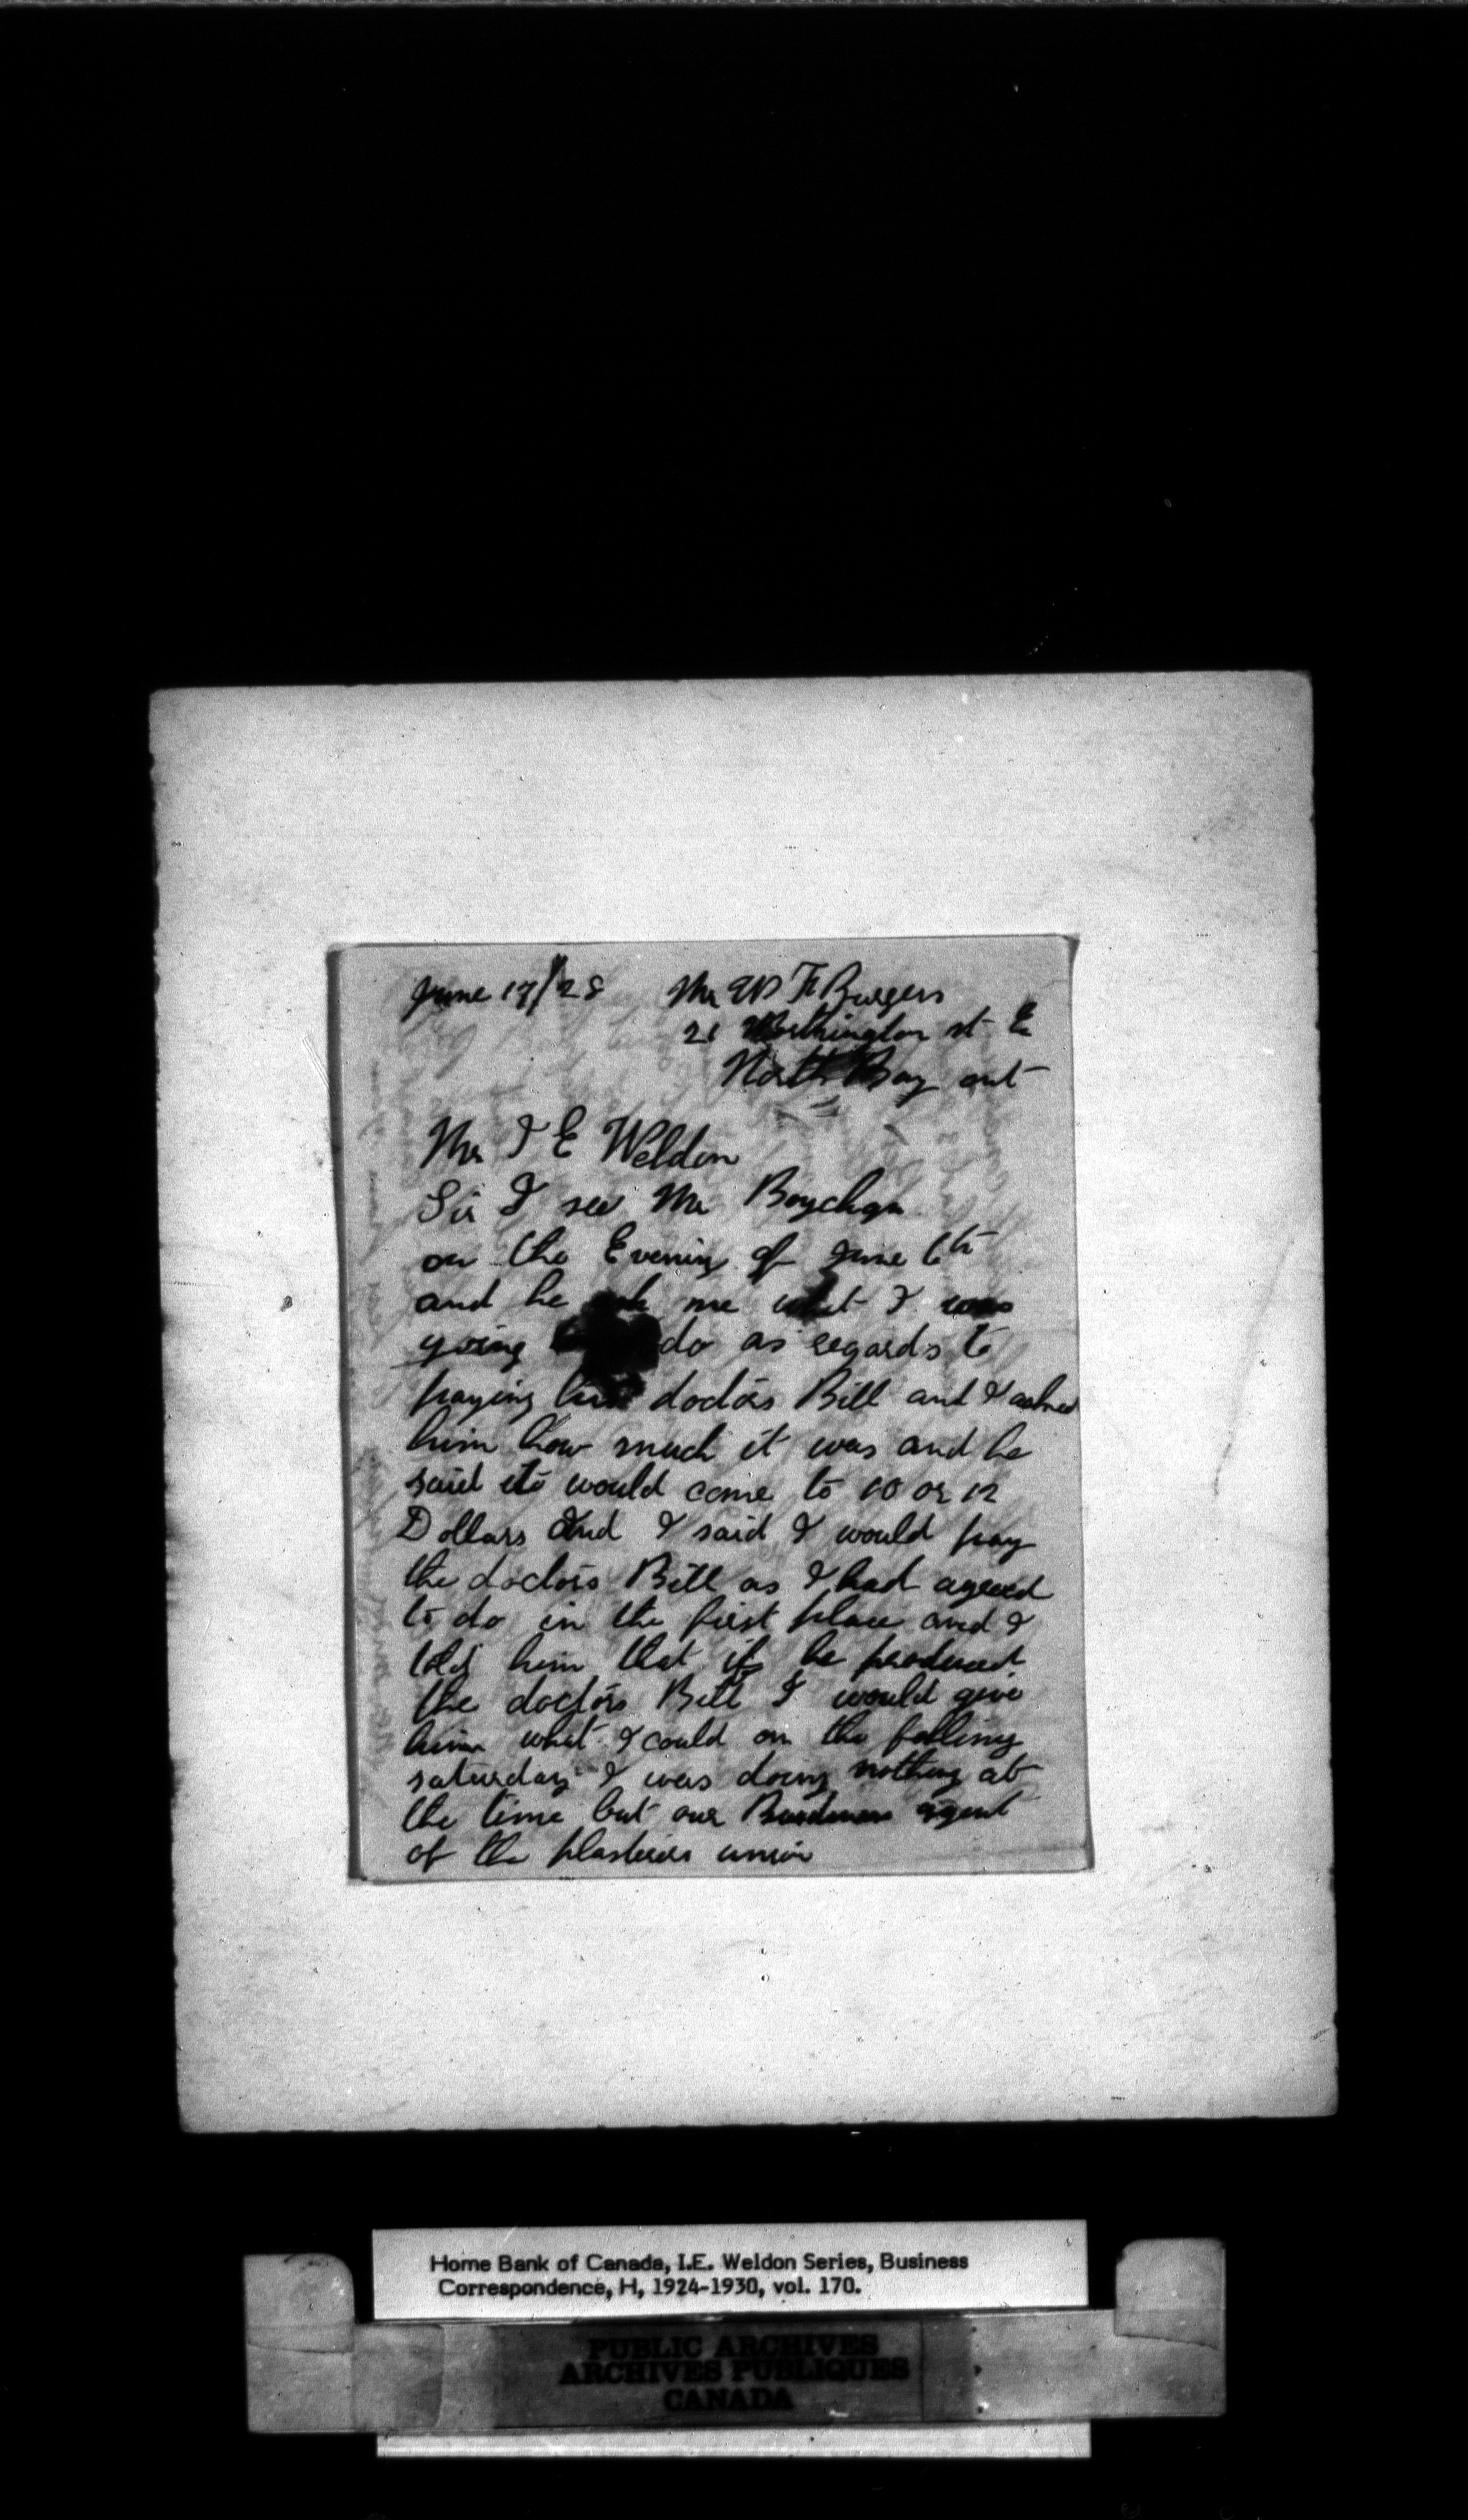 June 17/28 Mr W F Burgess
21 Worthington st E
North Bay ont
Mr I E Weldon
Sir I see Mr
on the Evening of June 6th
and he me what I was
going do as regards to
paying his doctors Bill and I asked
him how much it was and he
said it would come to 10 or 12
Dollars and I said I would pay
the doctors Bill as I had agreed
to do in the first place and I
told him that if he produced
the doctors Bill I would give
him what I could on the folling
saturday I was doing nothing at
the time but our Buisness agent
of the plasterers union
Home Bank of Canada, I.E. Weldon Series, Business
Correspondence, H, 1924-1930, vol. 170.
PUBLIC ARCHIVES
ARCHIVES PUBLIQUES
CANADA